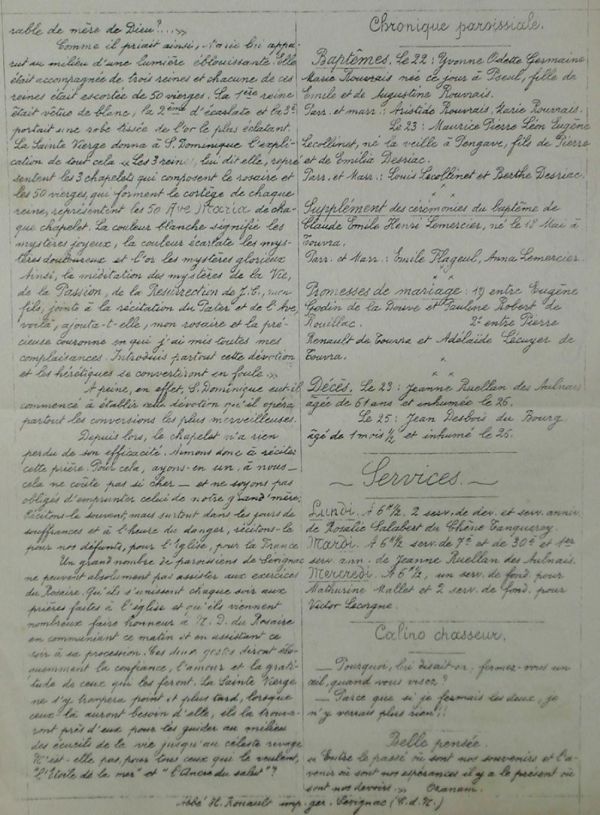 rable de mère de Dieu ?...»
Comme il priait ainsi, Marie lui appa-
rut au milieu d'une lumière éblouissante. Elle
était accompagnée de trois reines et chacune de ces
reines était escortée de 50 vierges. La 1ère reine
était vêtue de blanc, la 2ème d'écarlate et la 3e
portait une robe tissée de l'or le plus éclatant.
La Sainte Vierge donna à S. Dominique l'expli-
cation de tout cela « Les 3 reines, lui dit-elle, repré-
sentent les 3 chapelets qui composent le rosaire et
les 50 vierges, qui forment le cortège de chaque
reine, représentent les 50 Ave Maria de cha-
que chapelet. La couleur blanche signifie les
mystères joyeux, la couleur écarlate les mys-
tères douloureux et l'or les mystères glorieux
Ainsi, la méditation des mystères de la Vie,
de la Passion, de la Résurrection de J.C., mon
fils, jointe à la récitation du Pater et de l'Ave,
voilà, ajouta-t-elle, mon rosaire et la pré-
cieuse couronne en qui j'ai mis toutes mes
complaisances. Introduis partout cette dévotion
et les hérétiques se convertiront en foule »
A peine, en effet, S. Dominique eut-il
commencé à établir cette dévotion qu'il opéra
partout les conversions les plus merveilleuses.
Depuis lors, le chapelet n'a rien
perdu de son efficacité. Aimons donc à réciter
cette prière. Pour cela, ayons-en un, à nous —
cela ne coûte pas si cher — et ne soyons pas
obligés d'emprunter celui de notre grand'mère.
Récitons-le souvent, mais surtout dans les jours de
souffrances et à l'heure du danger, récitons-le
pour nos défunts, pour l'Eglise, pour la France
Un grand nombre de paroissiens de Sévignac
ne peuvent absolument pas assister aux exercices
du Rosaire. Qu'ils s'unissent chaque soir aux
prières faites à l'église et qu'ils viennent
nombreux faire honneur à N. D. du Rosaire
en communiant ce matin et en assistant ce
soir à sa procession. Ces deux gestes diront élo-
quemment la confiance, l'amour et la grati-
tude de ceux qui les feront. La Sainte Vierge
ne s'y trompera point et plus tard, lorsque
ceux-là auront besoin d'elle, ils la trouve-
ront près d'eux pour les guider au milieu
des écueils de la vie jusqu'au céleste rivage
N'est-elle pas, pour tous ceux qui le veulent,
"l'Etoile de la mer" et "l'Ancre du salut" ?
Chronique paroissiale.
Baptêmes. Le 22 : Yvonne Odette Germaine
Marie Rouvrais née ce jour à Beul, fille de
Emile et de Augustine Rouvrais.
Parr. et marr. : Aristide Rouvrais, Marie Rouvrais.
Le 23 : Maurice Pierre Léon Eugène
Lecollinet, né la veille à Pengave, fils de Pierre
et de Emilia Desriac.
Parr. et Marr. : Louis Lecollinet et Berthe Desriac.
Supplément des cérémonies du baptême de
Claude Emile Henri Lemercier, né le 18 Mai à
Touvra.
Parr. et Marr. : Emile Flageul, Anna Lemercier.
Promesses de mariage : 1º) entre Eugène
Godin de la Douve et Pauline Robert de
Rouillac. 2º entre Pierre
Renault de Touvra et Adélaïde Lécuyer de
Touvra.
Décès. Le 23 : Jeanne Ruellan des Aulnais
âgée de 61 ans et inhumée le 25.
Le 25 : Jean Desbois du Bourg
âgé de 1 mois ½ et inhumé le 26.
Services.
Lundi. A 6h ½, 2 serv. de dev. et serv. anniv.
de Rosalie Salabert du Chêne Tanqueroy.
Mardi. A 6h ½ serv. de 7e et de 30e et 1er
serv. ann. de Jeanne Ruellan des Aulnais.
Mercredi. A 6h ½, un serv. de fond. pour
Mathurine Mallet et 2 serv. de fond. pour
Victor Lecorgne.
Calino chasseur.
— Pourquoi, lui disait-on, fermez-vous un
œil, quand vous visez ?
— Parce que si je fermais les deux, je
n'y verrais plus rien !!
Belle pensée.
« Entre le passé où sont nos souvenirs et l'a-
venir où sont nos espérances il y a le présent où
sont nos devoirs. » Ozanam.
Abbé H. Rouault imp. ger. Sévignac (C. d. N.)